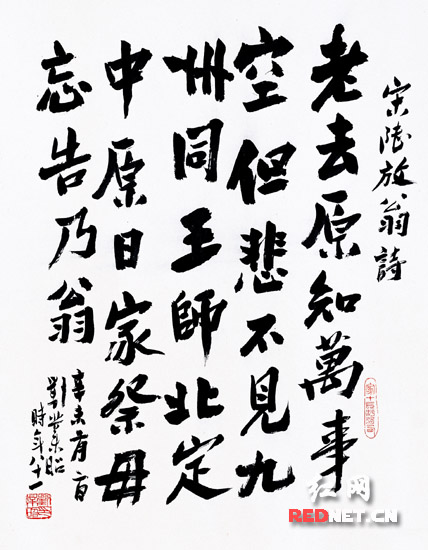 宋陸放翁詩
老去原知萬事
空但悲不見九
州同王師北定
中原日家祭毋
忘告乃翁
辛未
劉業昭
時年八十一
红网
REDNET.CN